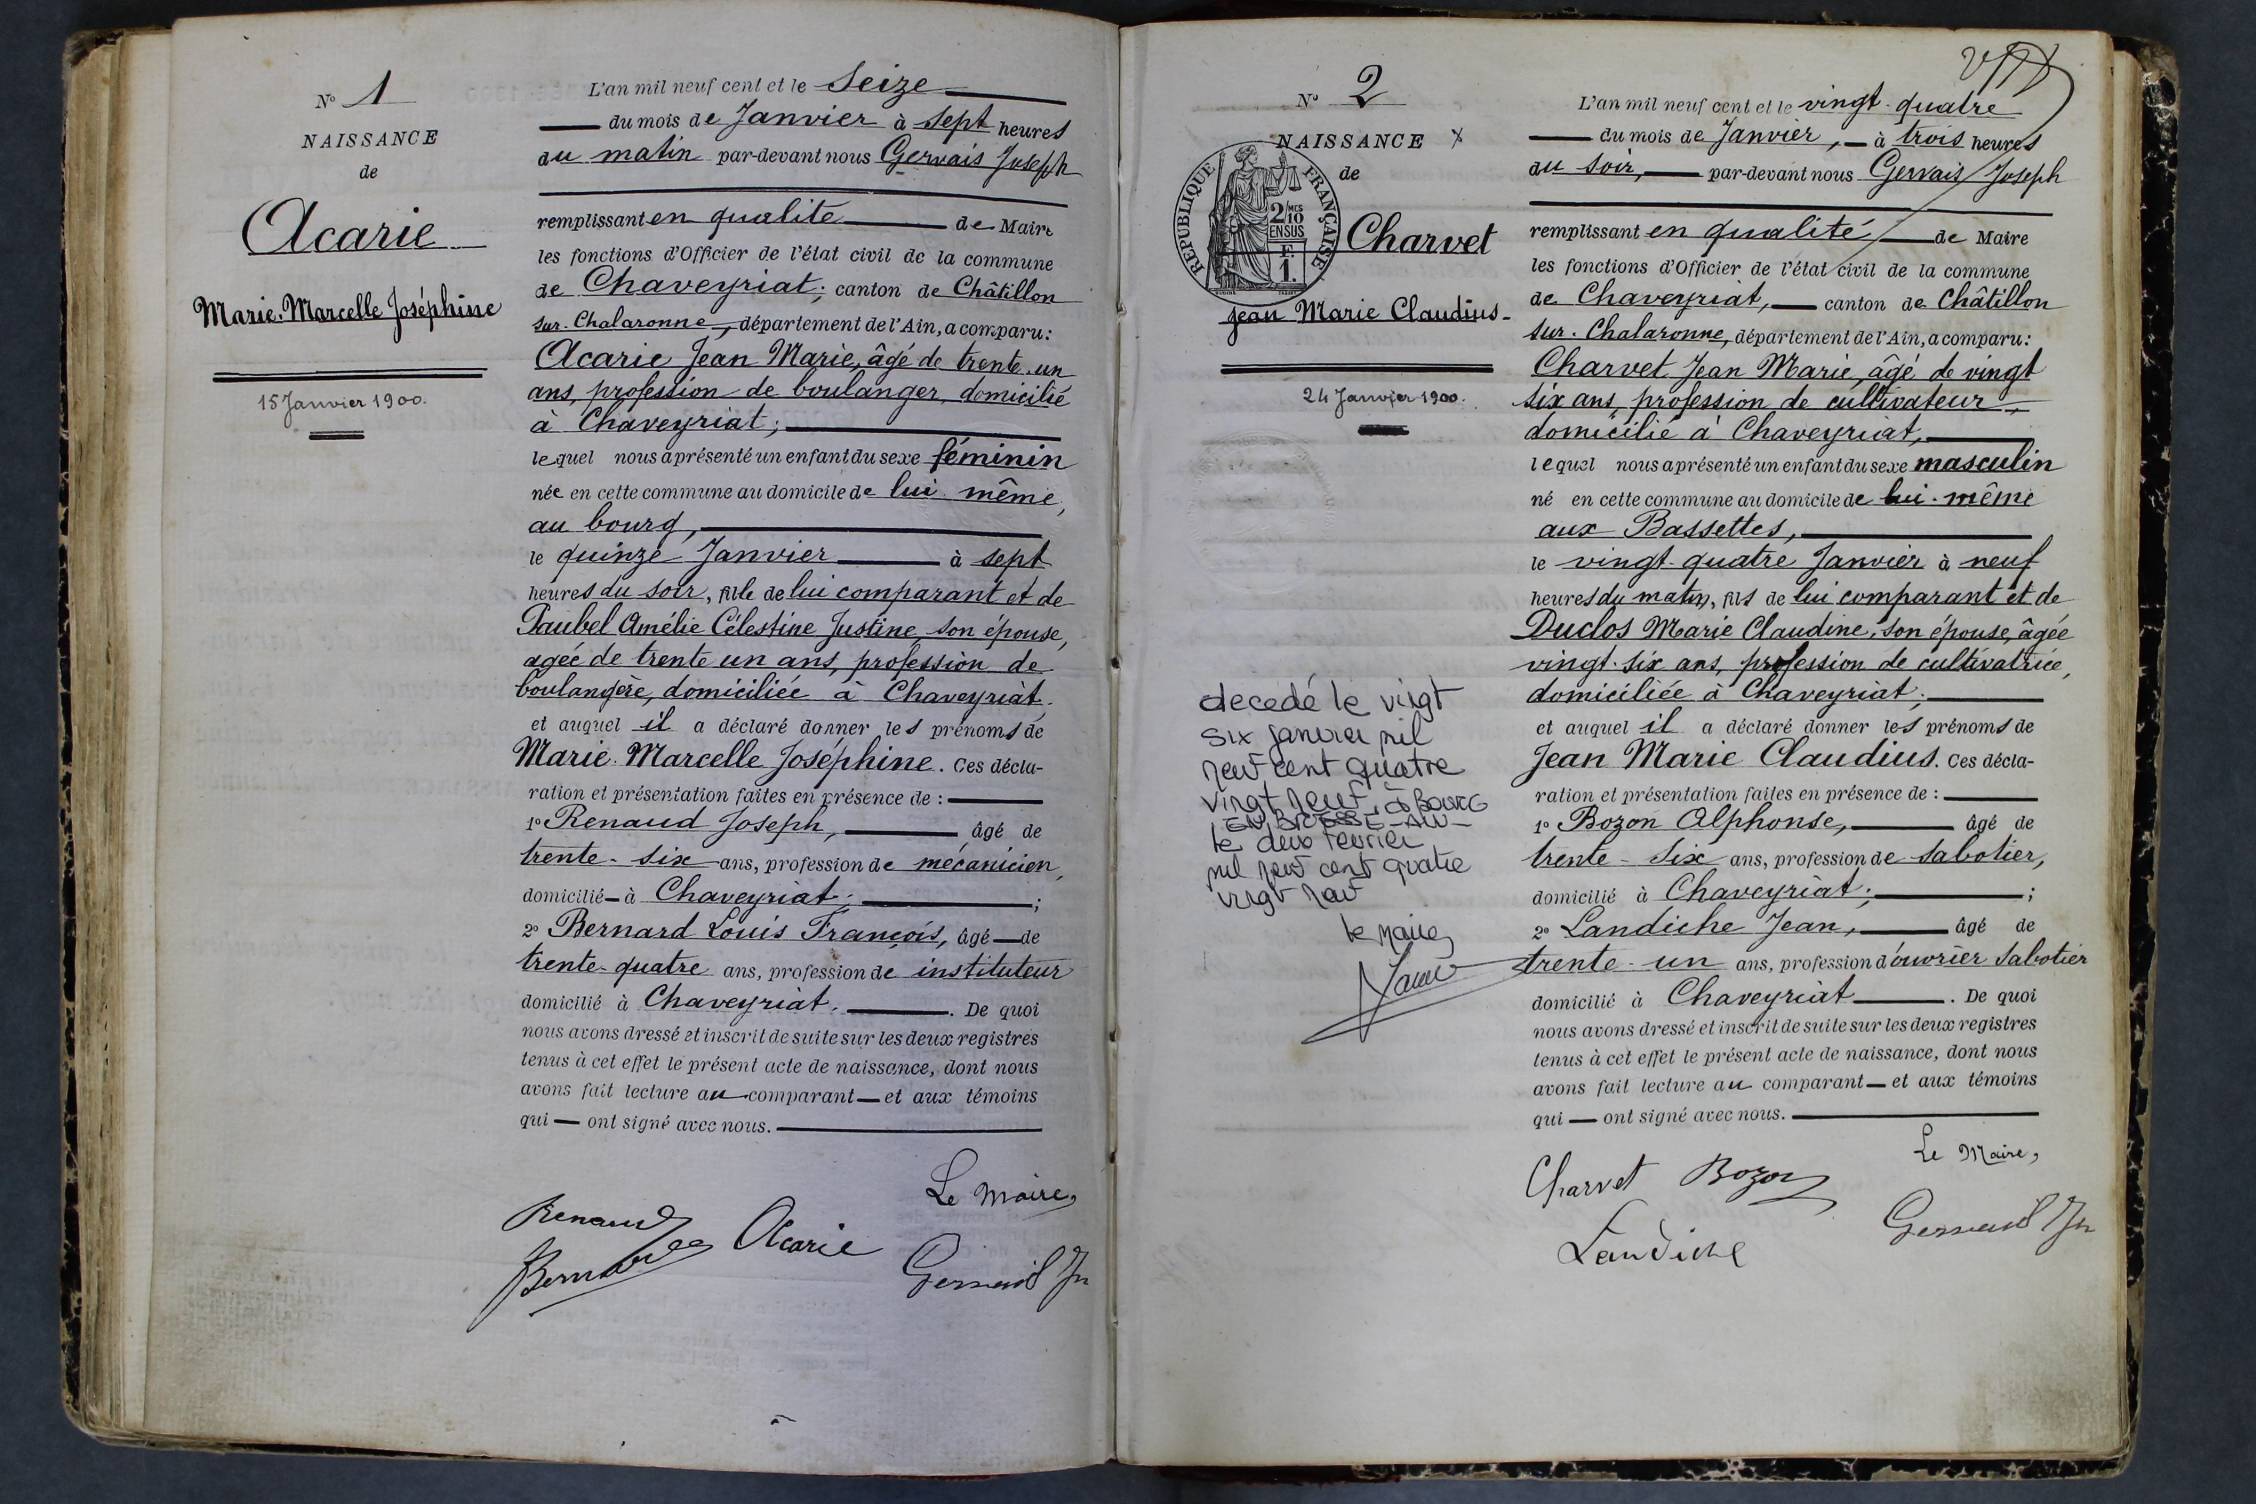 N° 1
NAISSANCE
de
Acarie
Marie Marcelle Joséphine
15 Janvier 1900.
L'an mil neuf cent et le Seize
du mois de Janvier à sept heures
du matin par-devant nous Gervais Joseph
remplissant en qualité de Maire
les fonctions d'Officier de l'état civil de la commune
de Chaveyriat, canton de Châtillon
sur-Chalaronne, département de l'Ain, a comparu:
Acarie Jean Marie, âgé de trente-un
ans, profession de boulanger, domicilié
à Chaveyriat;
lequel nous a présenté un enfant du sexe féminin
née en cette commune au domicile de lui-même,
au bourg,
le quinze Janvier à sept
heures du soir, fille de lui comparant et de
Paubel Amélie Célestine Justine, son épouse,
agée de trente un ans, profession de
boulangère, domiciliée à Chaveyriat.
et auquel il a déclaré donner les prénoms de
Marie Marcelle Joséphine. Ces décla-
ration et présentation faites en présence de :
1° Renaud Joseph, âgé de
trente-six ans, profession de mécanicien,
domicilié à Chaveyriat; ;
2° Bernard Louis François, âgé de
trente-quatre ans, profession de instituteur
domicilié à Chaveyriat. . De quoi
nous avons dressé et inscrit de suite sur les deux registres
tenus à cet effet le présent acte de naissance, dont nous
avons fait lecture au comparant et aux témoins
qui ont signé avec nous.
Le Maire,
Renaud
Bernard Acarie
N° 2
NAISSANCE
de
REPUBLIQUE FRANÇAISE
2/10 MES
EN SUS
F.
1.
Charvet
Jean Marie Claudius
24 Janvier 1900.
decedé le vingt
six janvier mil
neuf cent quatre
vingt neuf, à BOURG
EN BRESSE - AIN -
le deux fevrier
mil neuf cent quatre
vingt neuf
le maire
L'an mil neuf cent et le vingt-quatre
du mois de Janvier, à trois heures
du soir, par-devant nous Gervais Joseph
remplissant en qualité de Maire
les fonctions d'Officier de l'état civil de la commune
de Chaveyriat, canton de Châtillon
sur-Chalaronne, département de l'Ain, a comparu:
Charvet Jean Marie, âgé de vingt
six ans, profession de cultivateur,
domicilié à Chaveyriat,
lequel nous a présenté un enfant du sexe masculin
né en cette commune au domicile de lui-même
aux Bassettes,
le vingt-quatre Janvier à neuf
heures du matin, fils de lui comparant et de
Duclos Marie Claudine, son épouse, âgée
vingt-six ans, profession de cultivatrice,
domiciliée à Chaveyriat;
et auquel il a déclaré donner les prénoms de
Jean Marie Claudius. Ces décla-
ration et présentation faites en présence de :
1° Bozon Alphonse, âgé de
trente-six ans, profession de sabotier,
domicilié à Chaveyriat; ;
2° Landiche Jean, âgé de
trente-un ans, profession d'ouvrier sabotier
domicilié à Chaveyriat . De quoi
nous avons dressé et inscrit de suite sur les deux registres
tenus à cet effet le présent acte de naissance, dont nous
avons fait lecture au comparant et aux témoins
qui ont signé avec nous.
Le Maire,
Charvet Bozon
Landiche